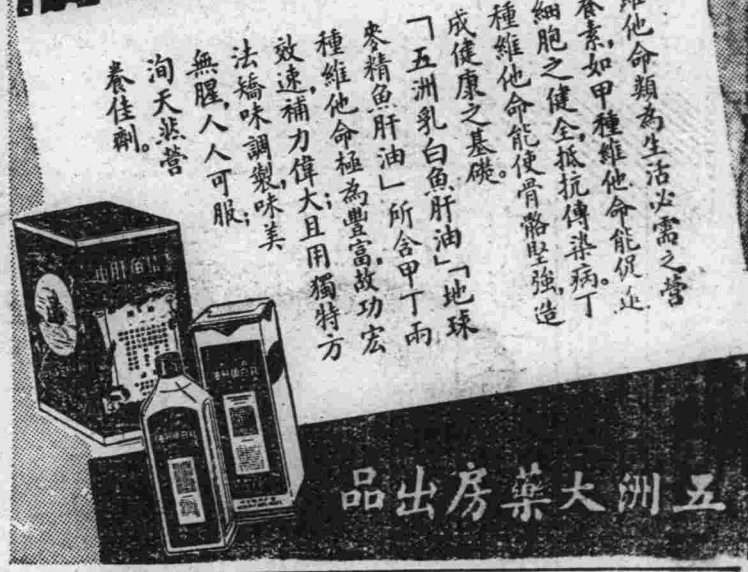 維他命類為生活必需之營
養素,如甲種維他命能促進
細胞之健全,抵抗傳染病。丁
種維他命能使骨骼堅強,造
成健康之基礎。
「五洲乳白魚肝油」「地球
麥精魚肝油」所含甲丁兩
種維他命極為豐富,故功宏
效速,補力偉大;且用獨特方
法矯味調製,味美
無腥,人人可服;
洵天然營
養佳劑。
五洲大藥房出品